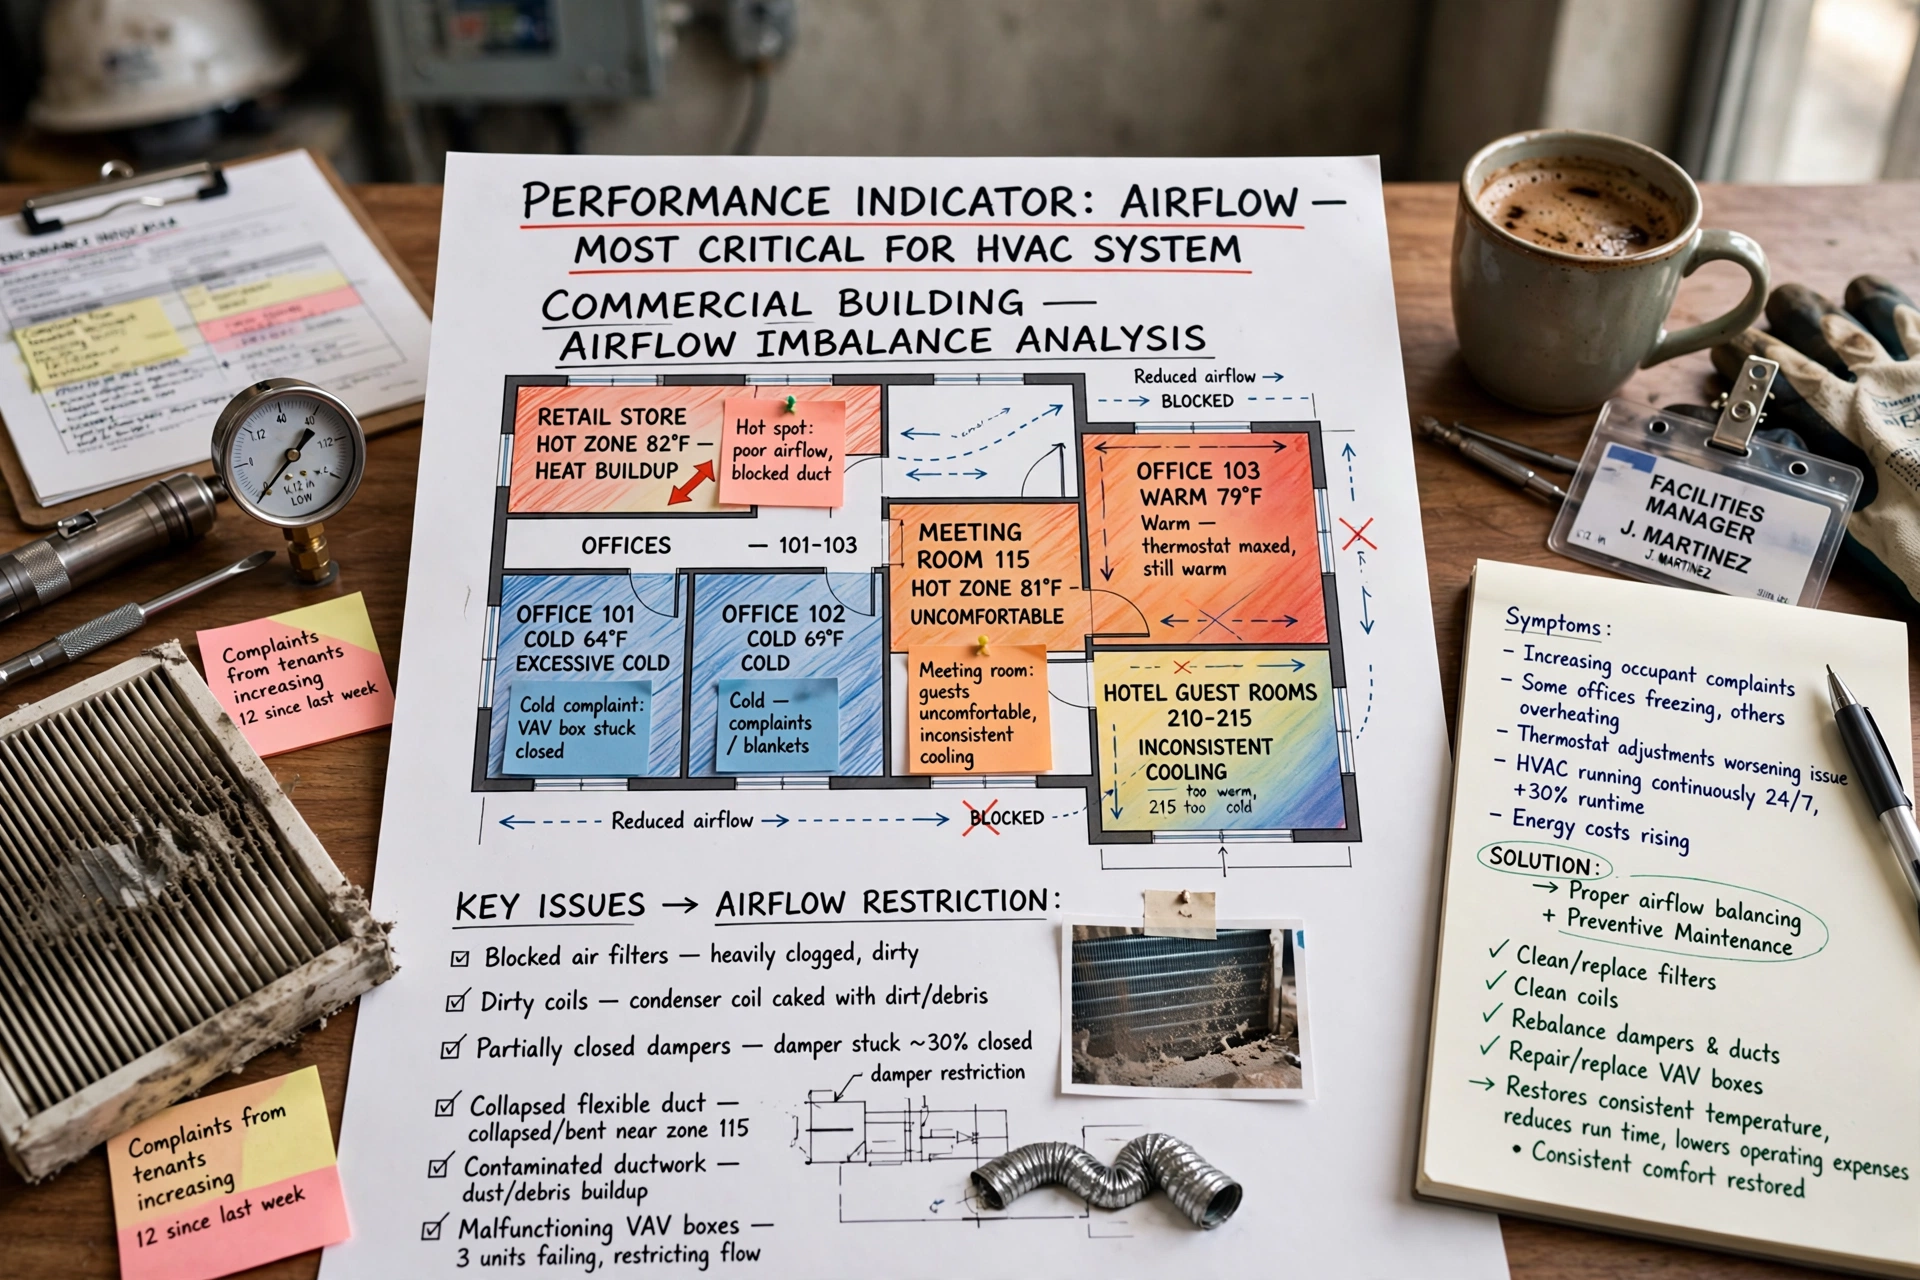 PERFORMANCE INDICATOR: AIRFLOW —
MOST CRITICAL FOR HVAC SYSTEM
COMMERCIAL BUILDING —
AIRFLOW IMBALANCE ANALYSIS
Reduced airflow →
BLOCKED
RETAIL STORE
HOT ZONE 82°F —
HEAT BUILDUP
Hot spot:
poor airflow,
blocked duct
OFFICES — 101-103
MEETING
ROOM 115
HOT ZONE 81°F -
UNCOMFORTABLE
OFFICE 103
WARM 79°F
Warm —
thermostat maxed,
still warm
OFFICE 101
COLD 64°F
EXCESSIVE COLD
Cold complaint:
VAV box stuck
closed
OFFICE 102
COLD 69°F
COLD
Cold —
complaints
/ blankets
Meeting room:
guests
uncomfortable,
inconsistent
cooling
HOTEL GUEST ROOMS
210-215
INCONSISTENT
COOLING
— too werm,
215 too cold
← Reduced airflow →
BLOCKED
KEY ISSUES → AIRFLOW RESTRICTION:
☑ Blocked air filters — heavily clogged, dirty
☑ Dirty coils — condenser coil caked with dirt/debris
☑ Partially closed dampers — damper stuck ~30% closed
damper restriction
☑ Collapsed flexible duct —
collapsed/bent near zone 115
☑ Contaminated ductwork —
dust/debris buildup
☑ Malfunctioning VAV boxes —
3 units failing, restricting flow
40
40
1.12
1.12
0
0
K.12 in
LOW
Complaints
from tenants
increasing
12 since last week
Complaints from
tenants
increasing
12 since last week
FACILITIES
MANAGER
J. MARTINEZ
J. MARTINEZ
Symptoms:
- Increasing occupant complaints
- Some offices freezing, others
overheating
- Thermostat adjustments worsening issue
- HVAC running continuously 24/7,
+30% runtime
- Energy costs rising
SOLUTION:
→ Proper airflow balancing
+ Preventive Maintenance
✓ Clean/replace filters
✓ Clean coils
✓ Rebalance dampers & ducts
✓ Repair/replace VAV boxes
→ Restores consistent temperature,
reduces run time, lowers operating expenses
• Consistent comfort restored